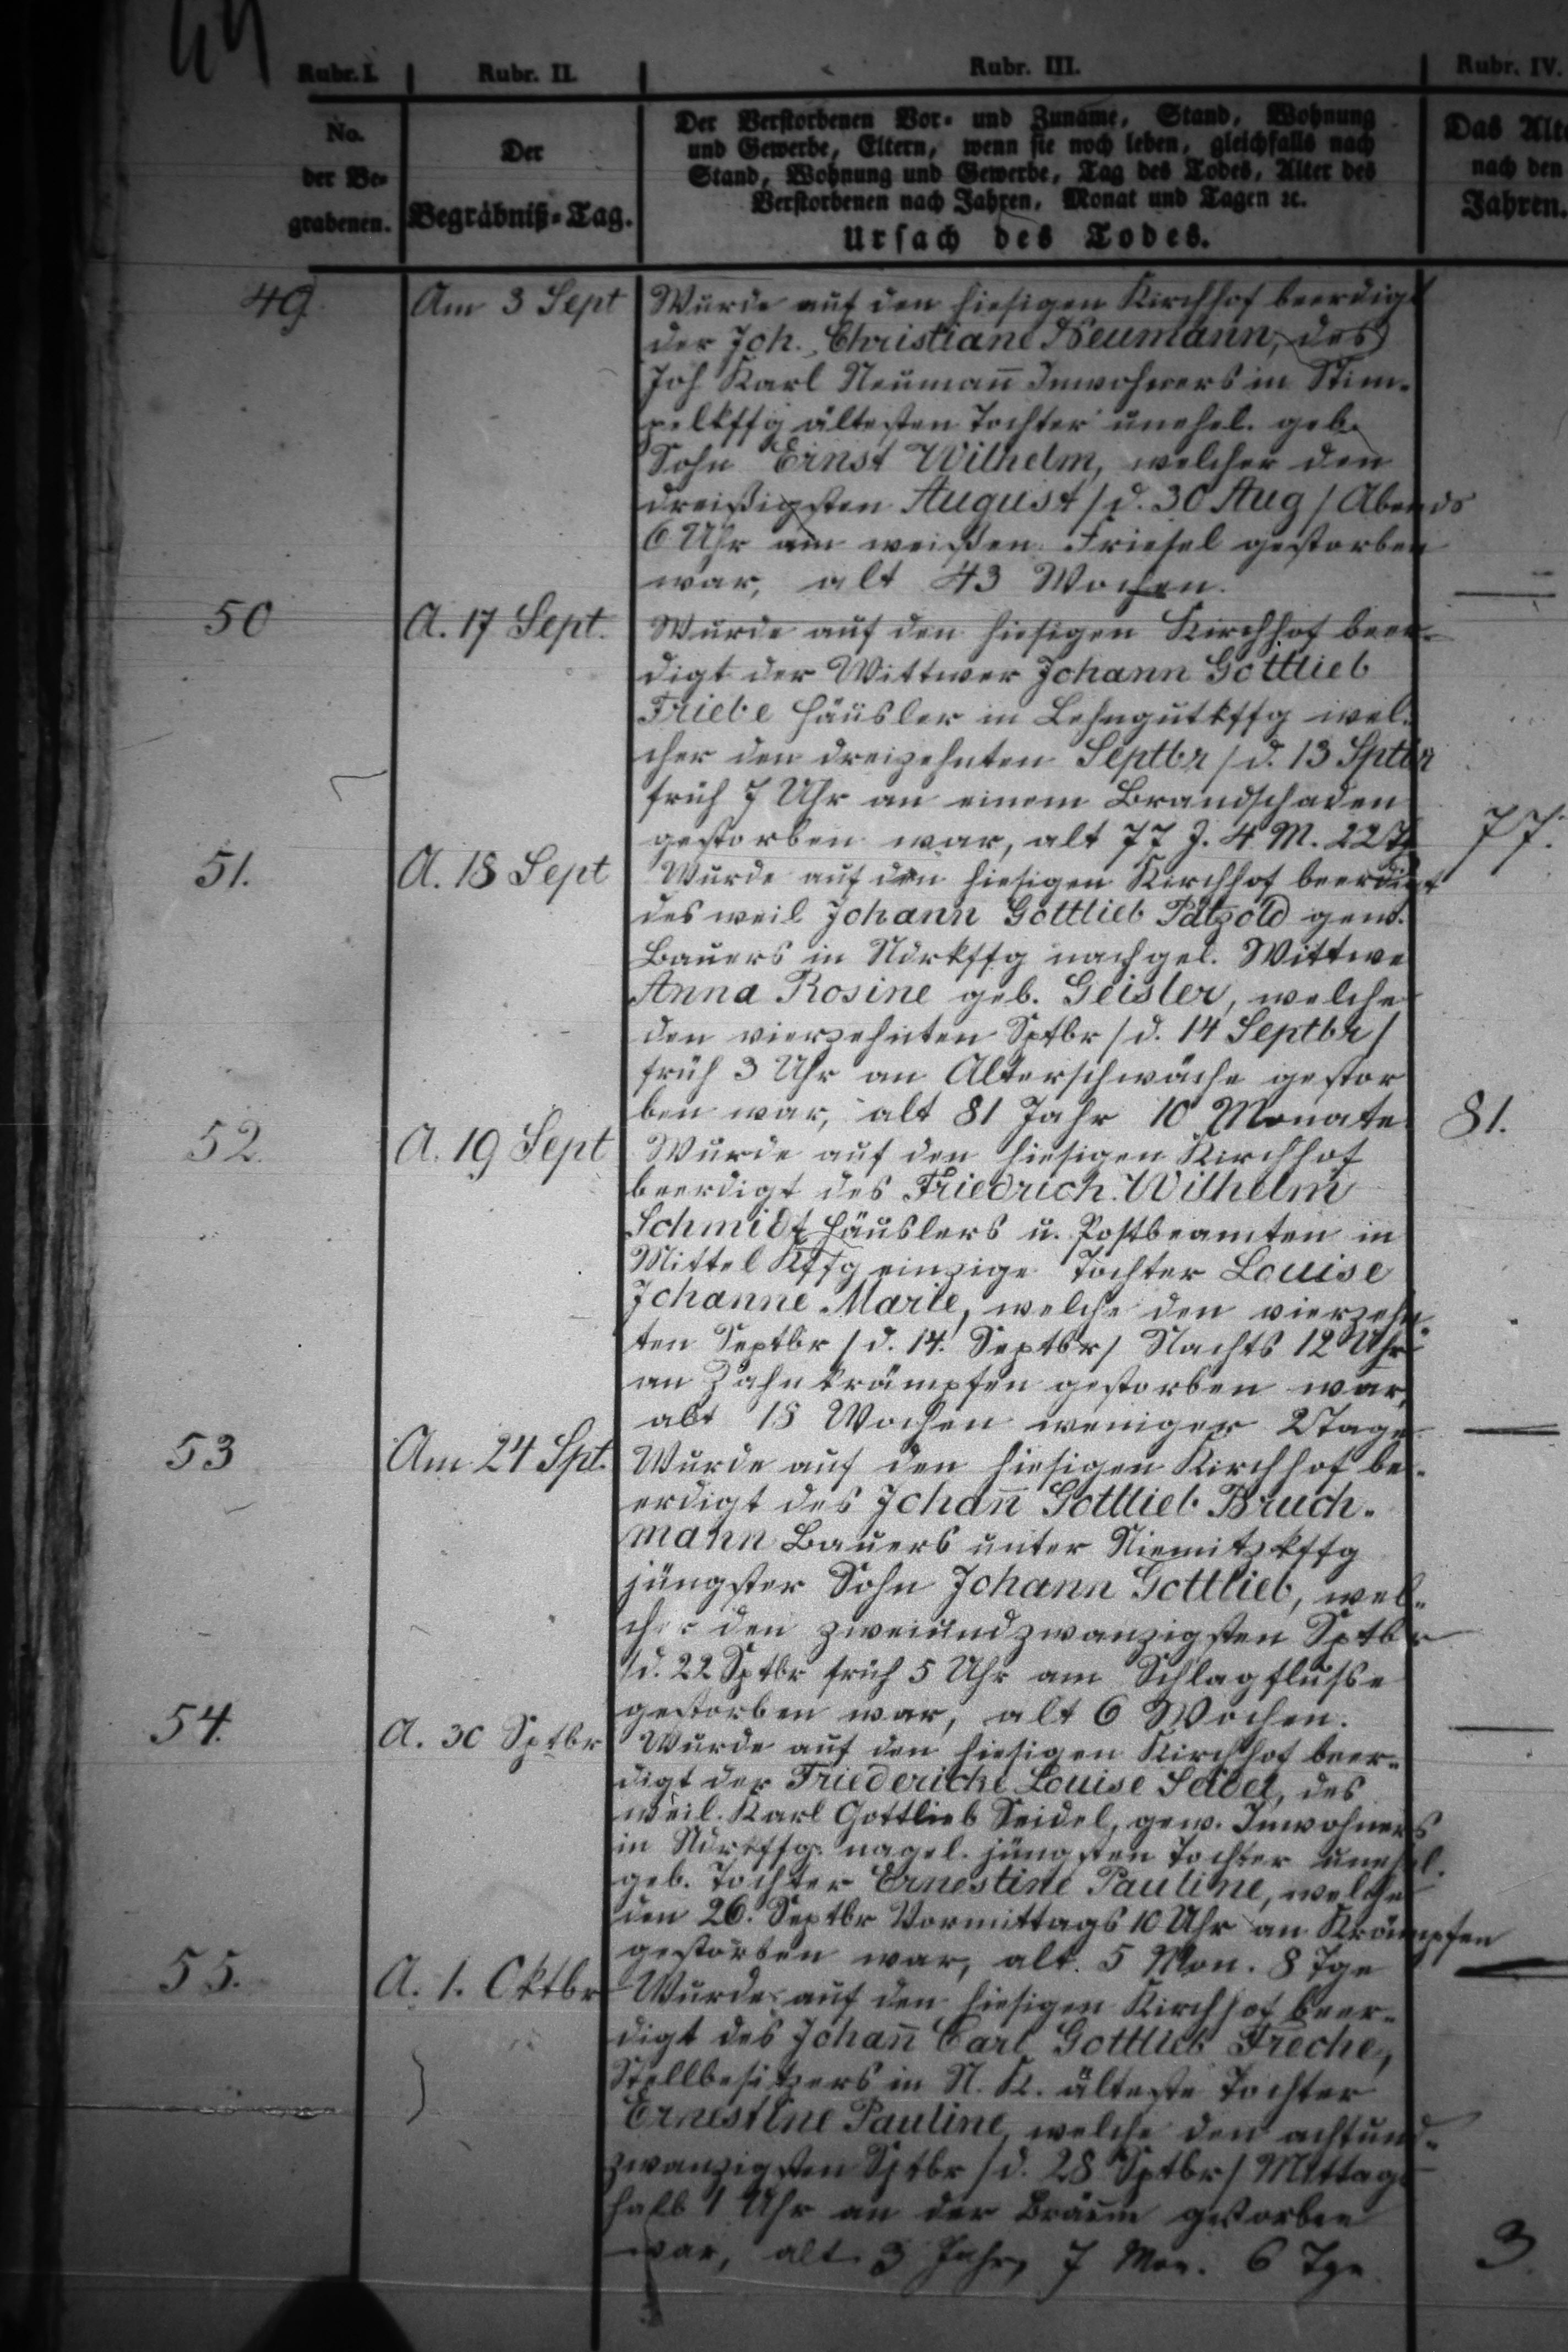 49
Rubr. I. Rubr. II. Rubr. III. Rubr. IV.
No. der Be- grabenen.
Der Begräbniß-Tag.
Der Verstorbenen Vor- und Zuname, Stand, Wohnung
und Gewerbe, Eltern, wenn sie noch leben, gleichfalls nach
Stand, Wohnung und Gewerbe, Tag des Todes, Alter des
Verstorbenen nach Jahren, Monat und Tagen ꝛc.
Ursach des Todes.
Das Alt
nach den
Jahren.
49 Am 3 Sept Wurde auf den hiesigen Kirchhof beerdigt
der Joh. Christiane Neumann, des
Joh Karl Neumañ Inwohners in Stim-
pelkffg ältesten Tochter unehel. geb.
Sohn Ernst Wilhelm, welcher den
dreißigsten August / d. 30 Aug / Abends
6 Uhr am weißen Friesel gestorben
war, alt 43 Wochen. —
50 A. 17 Sept. Wurde auf den hiesigen Kirchhof beer-
digt der Wittwer Johann Gottlieb
Friebe Häusler in Lehngutkffg wel-
cher den dreizehnten Septbr / d. 13 Sptbr
früh 7 Uhr an einem Brandschaden
gestorben war, alt 77 J. 4 M. 22 T. 77.
51. A. 18 Sept Wurde auf den hiesigen Kirchhof beerdigt
des weil Johann Gottlieb Pätzold gew.
Bauers in Ndrkffg nachgel. Wittwe
Anna Rosine geb. Geisler, welche
den vierzehnten Sptbr / d. 14 Septbr /
früh 3 Uhr an Alterschwäche gestor
ben war, alt 81 Jahr 10 Monate 81.
52. A. 19 Sept Wurde auf den hiesigen Kirchhof
beerdigt des Friedrich Wilhelm
Schmidt Häuslers u. Postbeamten in
Mittel Kffg einzige Tochter Louise
Johanne Marie, welche den vierzehn
ten Septbr / d. 14. Septbr / Nachts 12 Uhr
an Zahnkrämpfen gestorben war,
alt 18 Wochen weniger 2 Tage —
53 Am 24 Spt. Wurde auf den hiesigen Kirchhof be-
erdigt des Johañ Gottlieb Bruch-
mann Bauers unter Niemitzkffg
jüngster Sohn Johann Gottlieb, wel-
cher den zweiundzwanzigsten Sptbr
/d. 22 Sptbr früh 5 Uhr am Schlagflusse
gestorben war, alt 6 Wochen. —
54. A. 30 Sptbr Wurde auf den hiesigen Kirchhof beer-
digt der Friedericke Louise Seidel, des
weil. Karl Gottlieb Seidel, gew. Inwohners
in Ndrkffg. nagel. jüngsten Tochter unehel.
geb. Tochter Ernestine Pauline, welche
den 26. Septbr Vormittags 10 Uhr an Krämpfen
gestorben war, alt. 5 Mon. 8 Tge —
55. A. 1. Oktbr Wurde auf den hiesigen Kirchhof beer-
digt des Johañ Carl Gottlieb Freche,
Stellbesitzers in N. K. älteste Tochter
Ernestine Pauline, welche den achtund-
zwanzigsten Sptbr / d. 28 Sptbr / Mittag
halb 1 Uhr an der Bräune gestorben
war, alt 3 Jahr, 7 Mon. 6 Tge 3.